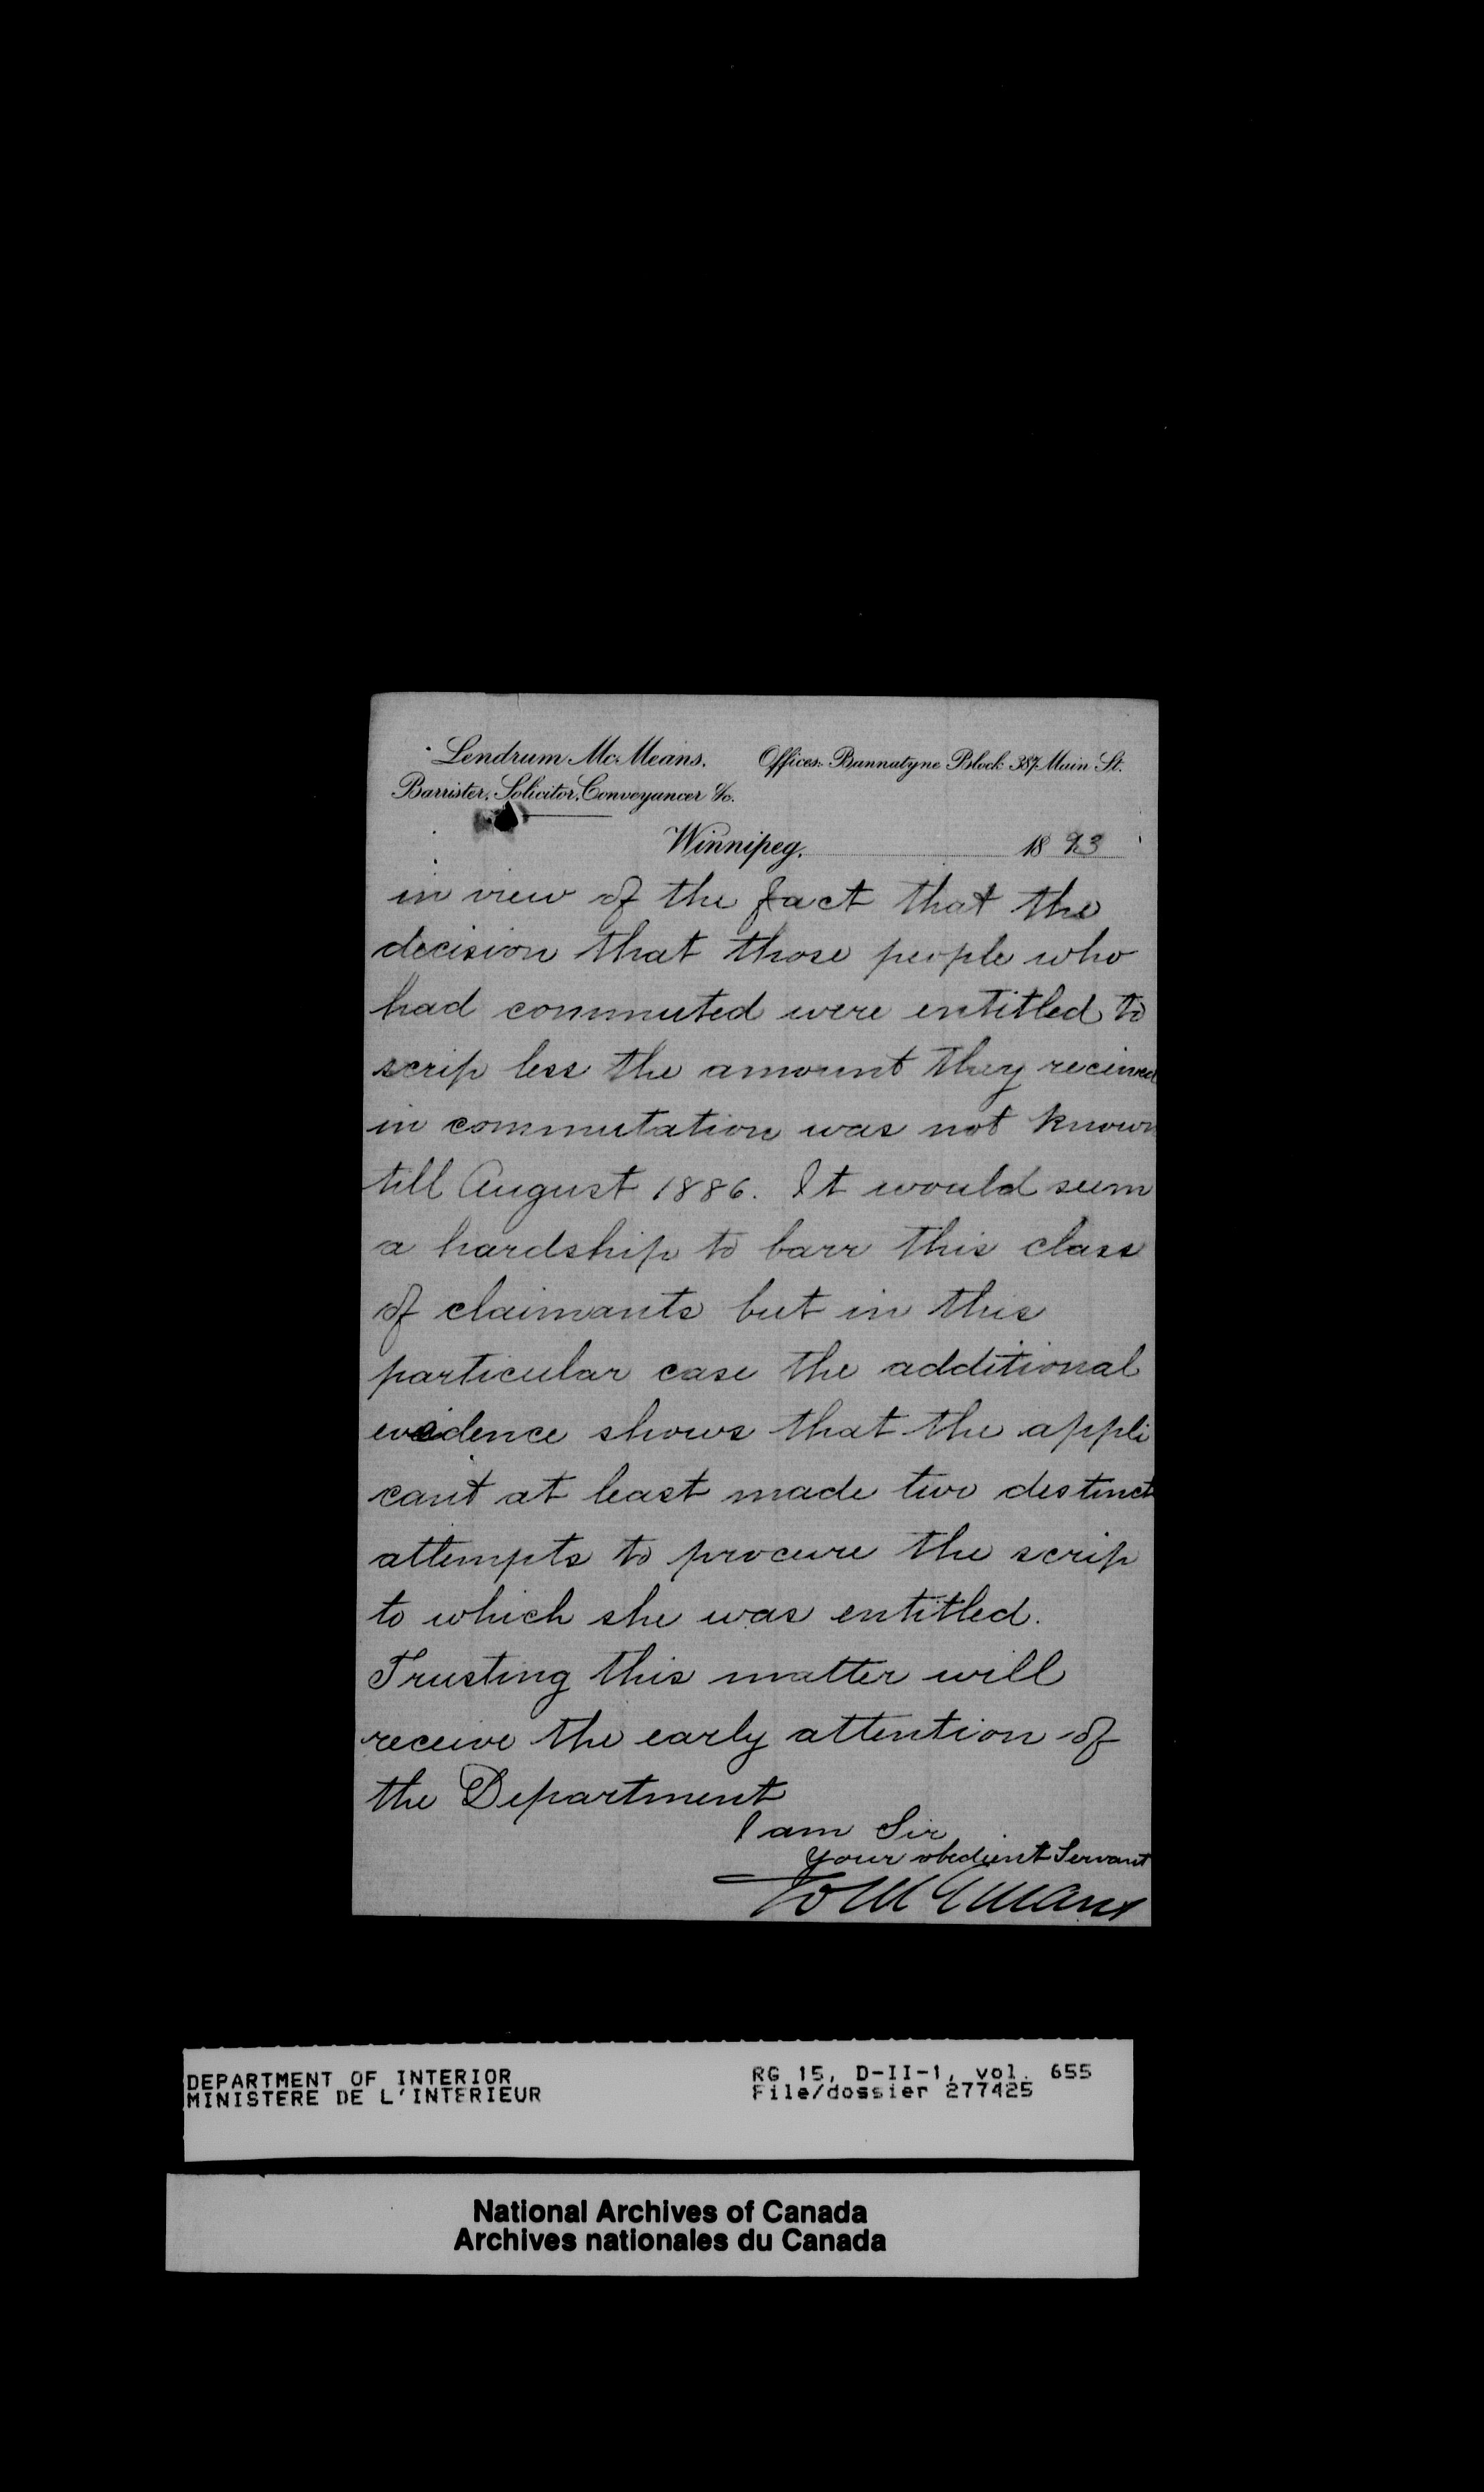 Lendrum Mc.Means. Offices: Bannatyne Block 387 Main St.
Barrister, Solicitor, Conveyancer &c.
Winnipeg. 1893
in view of the fact that the
decision that those people who
had commuted were entitled to
scrip less the amount they recieved
in commutation was not known
till August 1886. It would seem
a hardship to barr this class
of claimants but in this
particular case the additional
evidence shows that the appli
cant at least made two distinct
attempts to procure the scrip
to which she was entitled.
Trusting this matter will
receive the early attention of
the Department
I am Sir
Your obedient Servant
DEPARTMENT OF INTERIOR RG 15, D-II-1, vol. 655
MINISTERE DE L'INTERIEUR File/dossier 277425
National Archives of Canada
Archives nationales du Canada